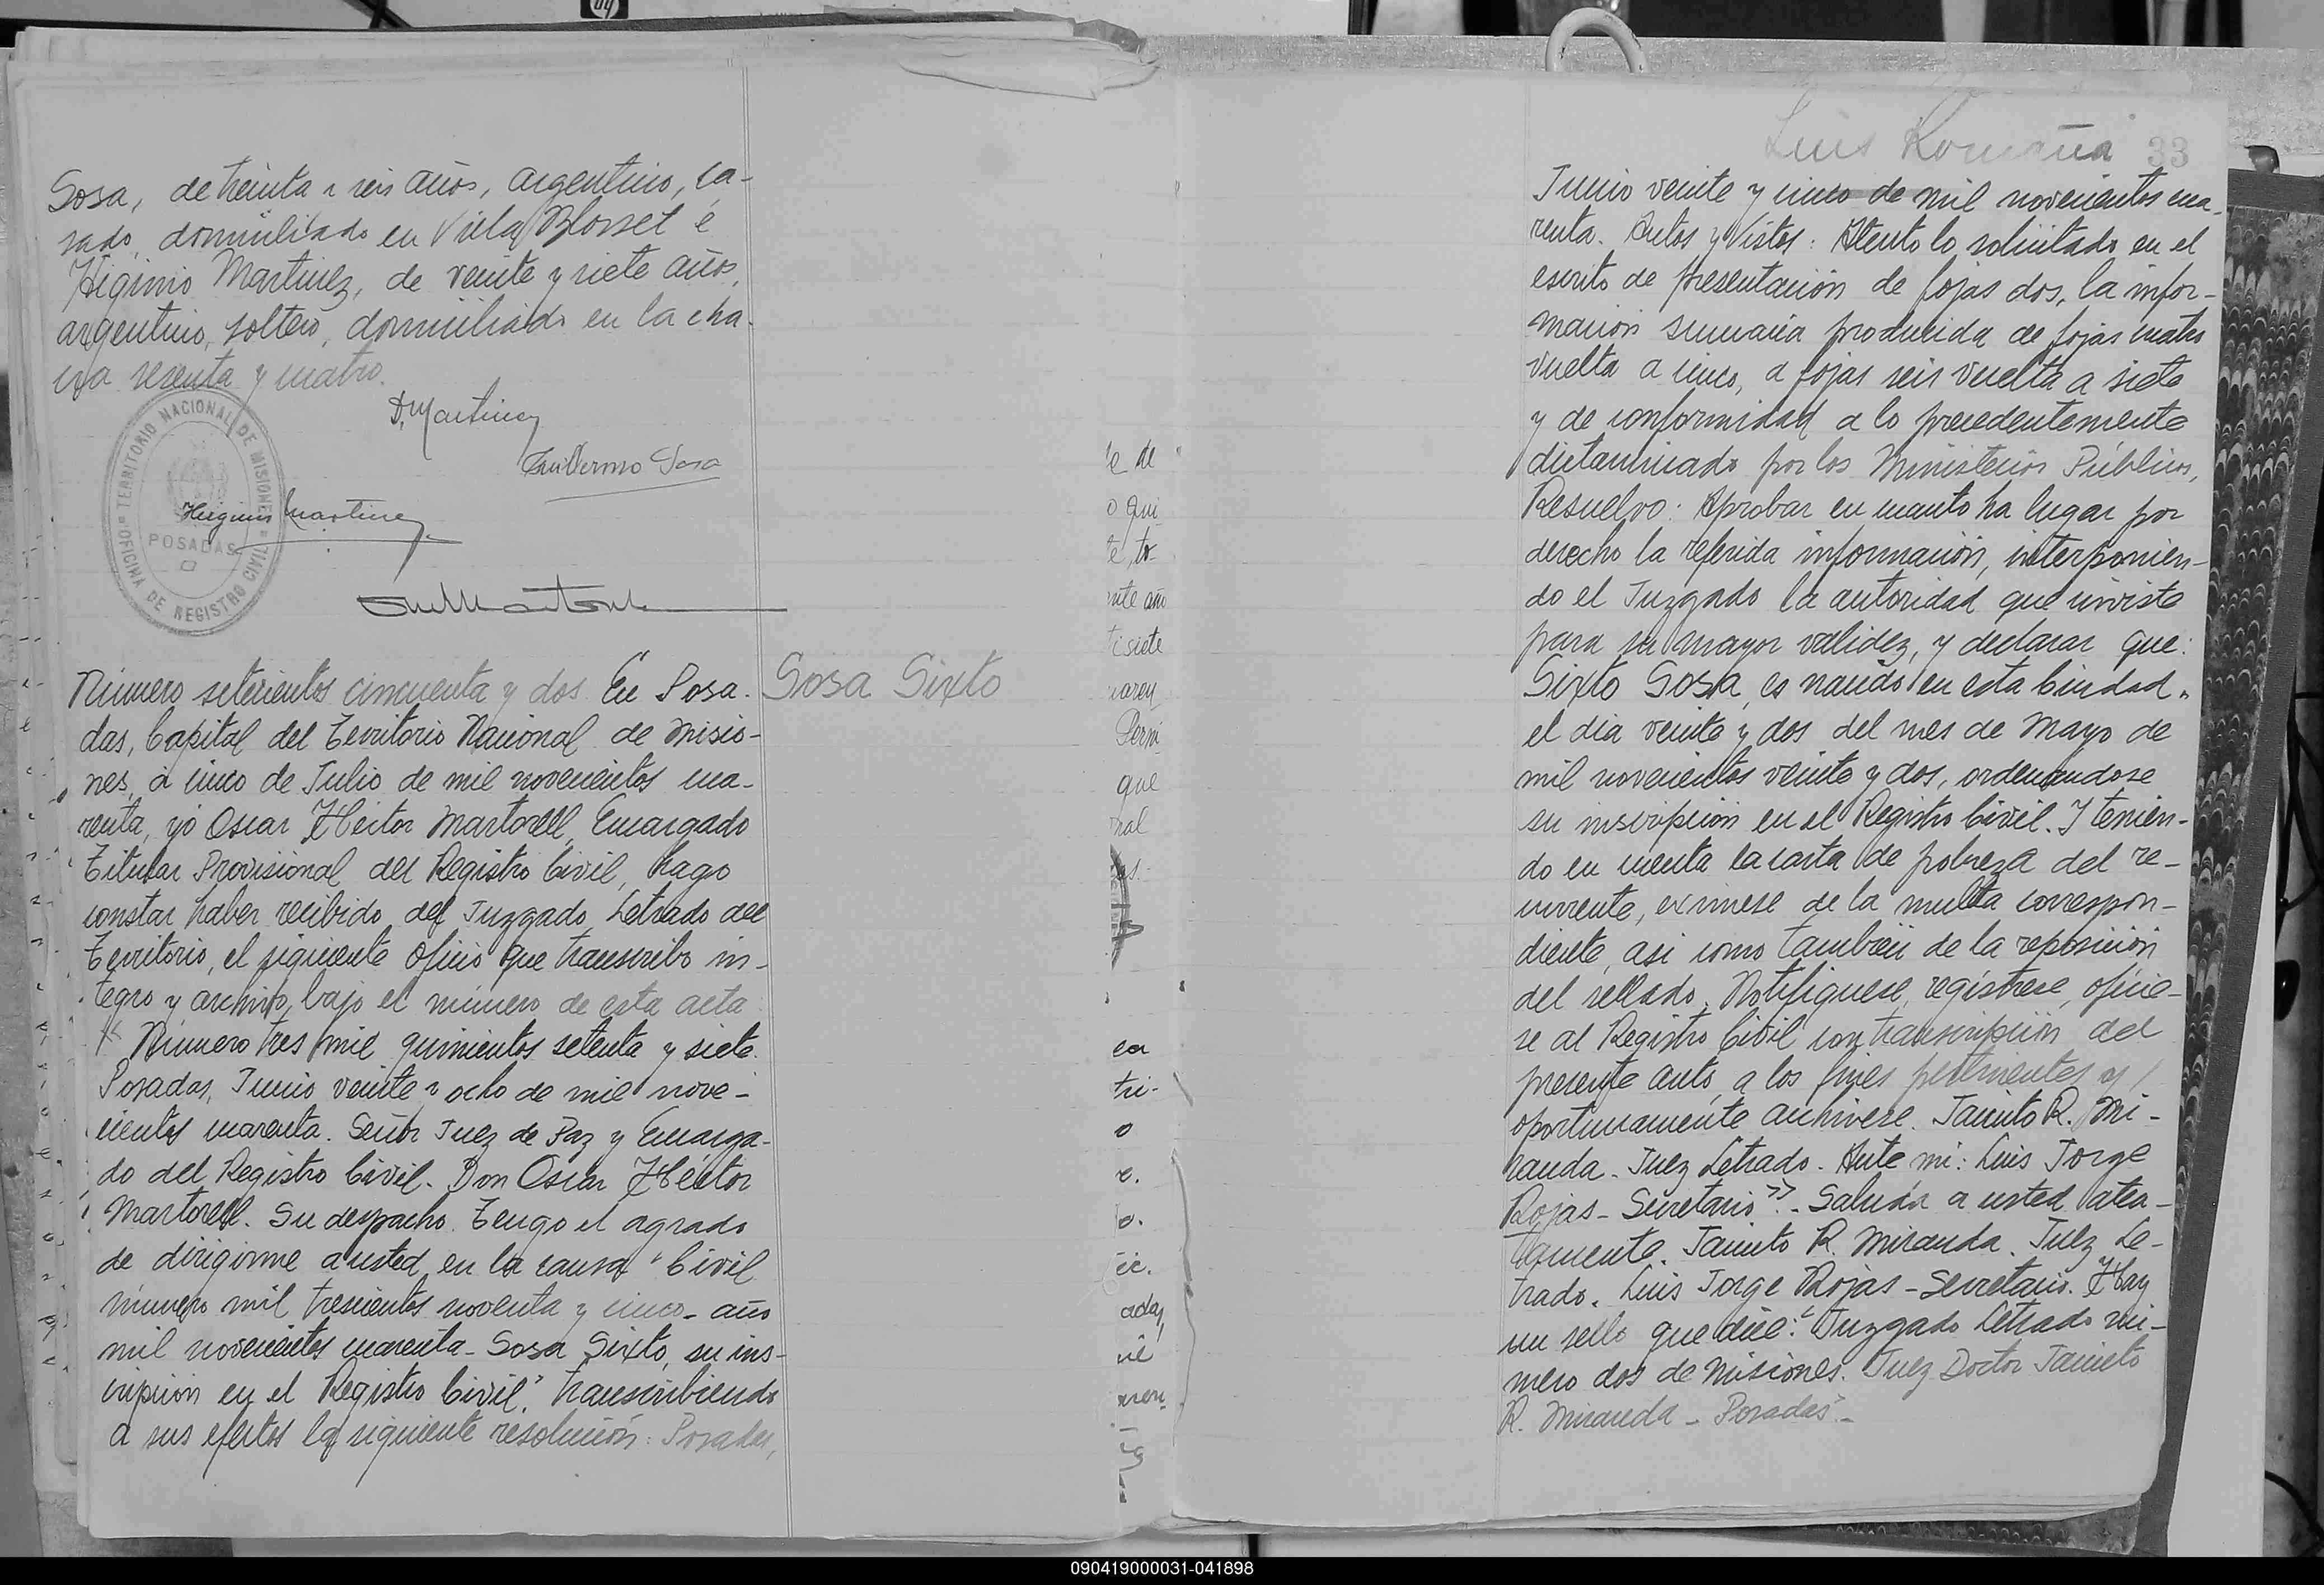 Sosa, de treinta y seis años, argentino, ca-
sado, domiciliado en Villa Blosset é
Higinio Martinez, de veinte y siete años,
argentino, soltero, domiciliado en la cha-
cra sesenta y cuatro.
D. Martinez
Guillermo Sosa
Higinio Martinez
TERRITORIO NACIONAL DE MISIONES
OFICINA DE REGISTRO CIVIL
POSADAS
Número setecientos cincuenta y dos. En Posa-
Sosa Sixto
das, Capital del Territorio Nacional de Misio-
nes, a cinco de Julio de mil novecientos cua-
renta, yo Oscar Héctor Martorell, Encargado
Titular Provisional del Registro Civil, hago
constar haber recibido del Juzgado Letrado del
Territorio, el siguiente oficio que transcribo in-
tegro y archivo, bajo el número de esta acta
"Número tres mil quinientos setenta y siete.
Posadas, Junio veinte y ocho de mil nove-
cientos cuarenta. Señor Juez de Paz y Encarga-
do del Registro Civil. Don Oscar Héctor
Martorell. Su despacho. Tengo el agrado
de dirigirme a usted en la causa "Civil
número mil trescientos noventa y cinco - año
mil novecientos cuarenta - Sosa Sixto, su ins-
cripción en el Registro Civil". Transcribiendo
a sus efectos la siguiente resolución: Posadas,
e de
o qui
te, to-
nte año
ti siete
que
en
tri-
o
r.
o.
cic.
adas,
vil
Luis Romaña
33
Junio veinte y cinco de mil novecientos cua-
renta. Autos y Vistos: Atento lo solicitado en el
escrito de presentación de fojas dos, la infor-
mación sumaria producida de fojas cuatro
vuelta a cinco, a fojas seis vuelta a siete
y de conformidad a lo precedentemente
dictaminado por los Ministerios Públicos,
Resuelvo: Aprobar en cuanto ha lugar por
derecho la referida información, interponien-
do el Juzgado la autoridad que inviste
para su mayor validez, y declarar que:
Sixto Sosa, es nacido en esta Ciudad,
el día veinte y dos del mes de Mayo de
mil novecientos veinte y dos, ordenandose
su inscripción en el Registro Civil. Y tenien-
do en cuenta la carta de pobreza del re-
currente, eximese de la multa correspon-
diente, asi como tambien de la reposición
del sellado. Notifiquese, registrese, oficie-
se al Registro Civil con transcripción del
presente auto, a los fines pertinentes y
oportunamente archivese. Jacinto R. Mi-
randa - Juez Letrado - Ante mi: Luis Jorge
Rojas - Secretario". - Saluda a usted aten-
tamente. Jacinto R. Miranda. Juez Le-
trado. Luis Jorge Rojas - Secretario. Hay
un sello que dice: "Juzgado Letrado nú-
mero dos de Misiones. Juez Doctor Jacinto
R. Miranda - Posadas". -
090419000031-041898